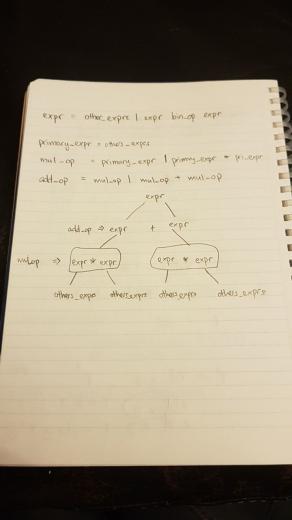 expr = other_exprs | expr bin_op expr
primary_expr = others_exprs
mul_op = primary_expr | primary_expr * pri_expr
add_op = mul_op | mul_op + mul_op
expr
add_op ⇒ expr + expr
mul_op ⇒ expr * expr expr * expr
others_expr others_exprs others_exprs others_exprs